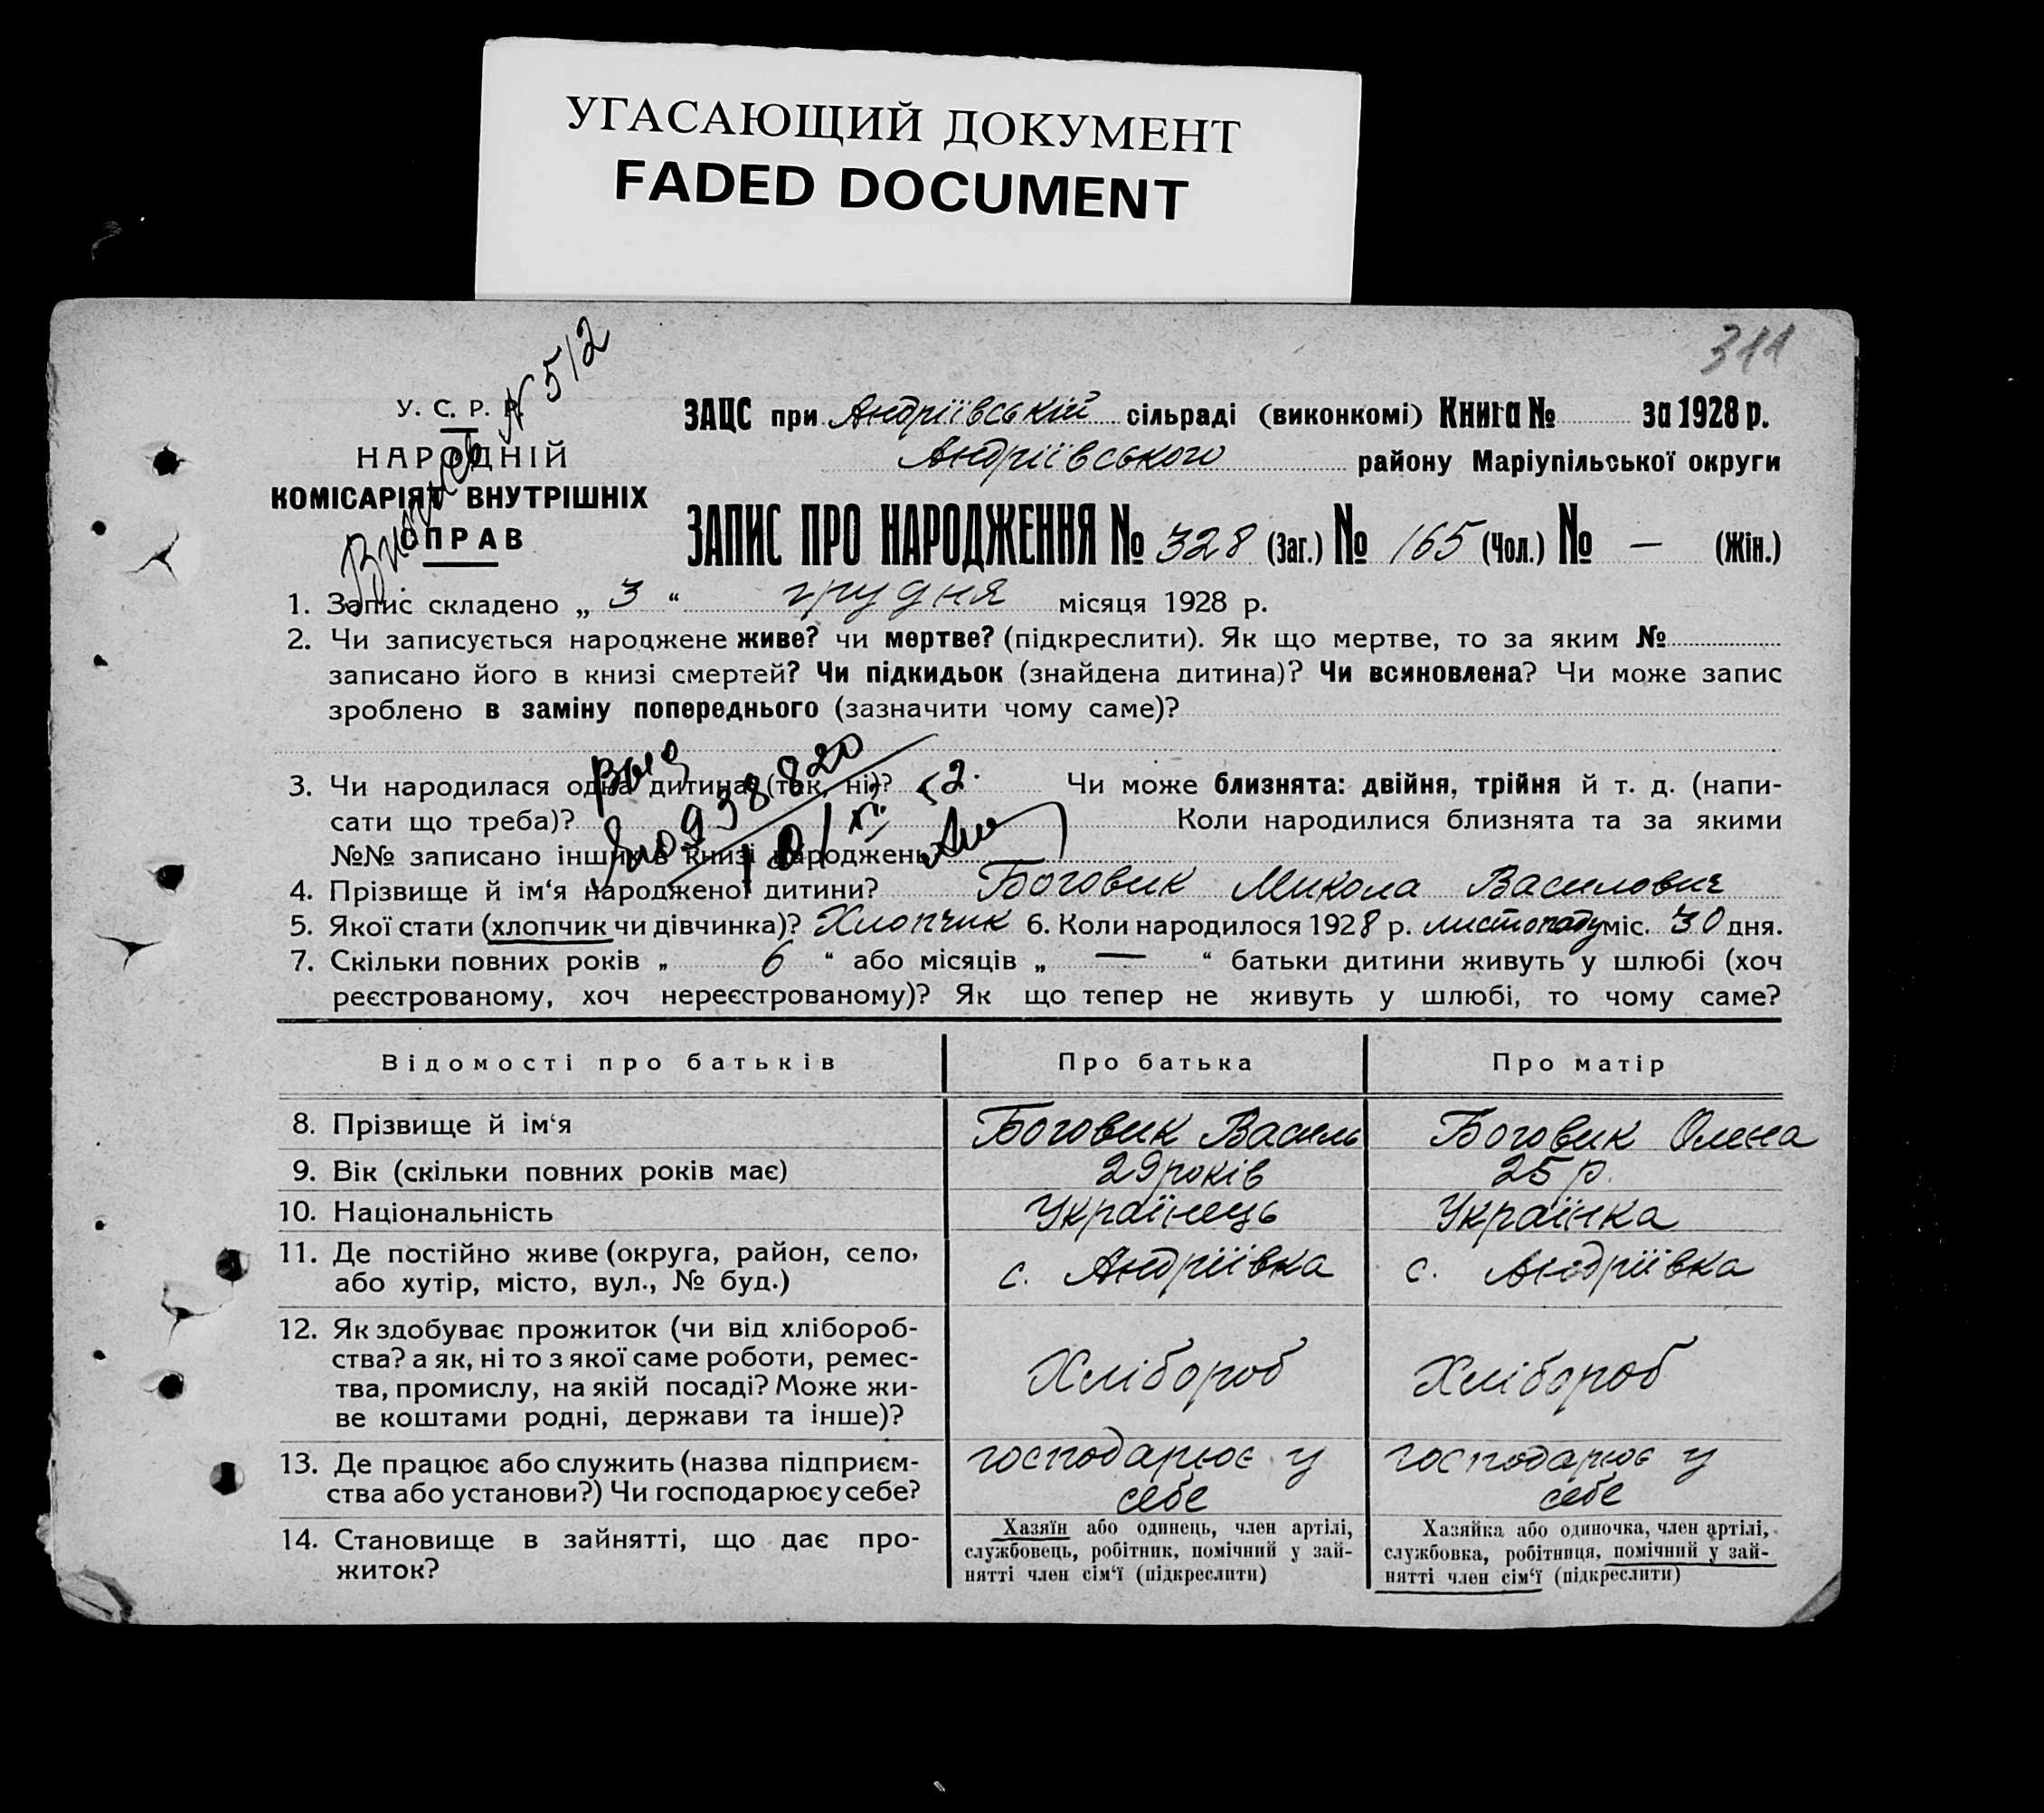 УГАСАЮЩИЙ ДОКУМЕНТ
FADED DOCUMENT
311
N 512
У. С. Р. Р.
НАРОДНІЙ
КОМІСАРІЯТ ВНУТРІШНІХ
СПРАВ
ЗАЦС при Андріївській сільраді (виконкомі) Книга № за 1928 р.
Андріївського району Маріупільської округи
ЗАПИС ПРО НАРОДЖЕННЯ № 328 (Заг.) № 165 (Чол.) № — (Жін.)
1. Запис складено „ 3 “ грудня місяця 1928 р.
2. Чи записується народжене живе? чи мертве? (підкреслити). Як що мертве, то за яким №
записано його в книзі смертей? Чи підкидьок (знайдена дитина)? Чи всиновлена? Чи може запис
зроблено в заміну попереднього (зазначити чому саме)?
3. Чи народилася одна дитина? (так, ні)? Чи може близнята: двійня, трійня й т. д. (напи-
сати що треба)? Коли народилися близнята та за якими
№№ записано інших в книзі народжень
4. Прізвище й ім‘я народженої дитини? Боговик Микола Василович
5. Якої стати (хлопчик чи дівчинка)? Хлопчик 6. Коли народилося 1928 р. листопаду міс. 30 дня.
7. Скільки повних років „ 6 “ або місяців „ — “ батьки дитини живуть у шлюбі (хоч
реєстрованому, хоч нереєстрованому)? Як що тепер не живуть у шлюбі, то чому саме?
Відомості про батьків Про батька Про матір
8. Прізвище й ім‘я Боговик Василь Боговик Олена
9. Вік (скільки повних років має) 29 років 25 р.
10. Національність Українець Українка
11. Де постійно живе (округа, район, село,
або хутір, місто, вул., № буд.) с. Андріївка с. Андріївка
12. Як здобуває прожиток (чи від хлібороб-
ства? а як, ні то з якої саме роботи, ремес-
тва, промислу, на якій посаді? Може жи-
ве коштами родні, держави та інше)? Хлібороб Хлібороб
13. Де працює або служить (назва підприєм-
ства або установи?) Чи господарює у себе? господарює у себе господарює у себе
14. Становище в зайнятті, що дає про-
житок?
Хазяїн або одинець, член артілі,
службовець, робітник, помічний у зай-
нятті член сім‘ї (підкреслити)
Хазяйка або одиночка, член артілі,
службовка, робітниця, помічний у зай-
нятті член сім‘ї (підкреслити)